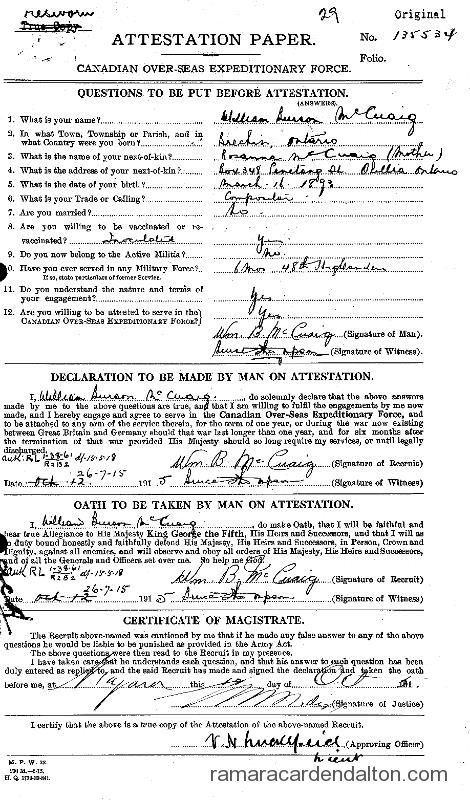 29
Original
True Copy
ATTESTATION PAPER.
No. 135534
Folio.
CANADIAN OVER-SEAS EXPEDITIONARY FORCE.
QUESTIONS TO BE PUT BEFORE ATTESTATION.
(ANSWERS)
1. What is your name? William McCuaig
2. In what Town, Township or Parish, and in
what Country were you born? Brechin, Ontario
3. What is the name of your next-of-kin? Rosanna McCuaig (Mother)
4. What is the address of your next-of-kin? Box 348 St Orillia Ontario
5. What is the date of your birth? March 16 1893
6. What is your Trade or Calling? Carpenter
7. Are you married? No
8. Are you willing to be vaccinated or re-
vaccinated? Yes
9. Do you now belong to the Active Militia? No
10. Have you ever served in any Military Force? 6 Mos 48th Highlanders
If so, state particulars of former Service.
11. Do you understand the nature and terms of
your engagement? Yes
12. Are you willing to be attested to serve in the
CANADIAN OVER-SEAS EXPEDITIONARY FORCE? Yes
Wm. B. McCuaig (Signature of Man).
(Signature of Witness).
DECLARATION TO BE MADE BY MAN ON ATTESTATION.
I, William McCuaig, do solemnly declare that the above answers
made by me to the above questions are true, and that I am willing to fulfil the engagements by me now
made, and I hereby engage and agree to serve in the Canadian Over-Seas Expeditionary Force, and
to be attached to any arm of the service therein, for the term of one year, or during the war now existing
between Great Britain and Germany should that war last longer than one year, and for six months after
the termination of that war provided His Majesty should so long require my services, or until legally
discharged.
Wm B McCuaig (Signature of Recruit)
26-7-15
Date Oct 12 1915 (Signature of Witness)
OATH TO BE TAKEN BY MAN ON ATTESTATION.
I, William McCuaig, do make Oath, that I will be faithful and
bear true Allegiance to His Majesty King George the Fifth, His Heirs and Successors, and that I will as
in duty bound honestly and faithfully defend His Majesty, His Heirs and Successors, in Person, Crown and
Dignity, against all enemies, and will observe and obey all orders of His Majesty, His Heirs and Successors,
and of all the Generals and Officers set over me. So help me God.
Wm B. McCuaig (Signature of Recruit)
26-7-15
Date Oct 12 1915 (Signature of Witness)
CERTIFICATE OF MAGISTRATE.
The Recruit above-named was cautioned by me that if he made any false answer to any of the above
questions he would be liable to be punished as provided in the Army Act.
The above questions were then read to the Recruit in my presence.
I have taken care that he understands each question, and that his answer to each question has been
duly entered as replied to, and the said Recruit has made and signed the declaration and taken the oath
before me, at Niagara this day of Oct 191 .
(Signature of Justice)
I certify that the above is a true copy of the Attestation of the above-named Recruit.
(Approving Officer)
Lieut
M. F. W. 23.
ramaracardendalton.com